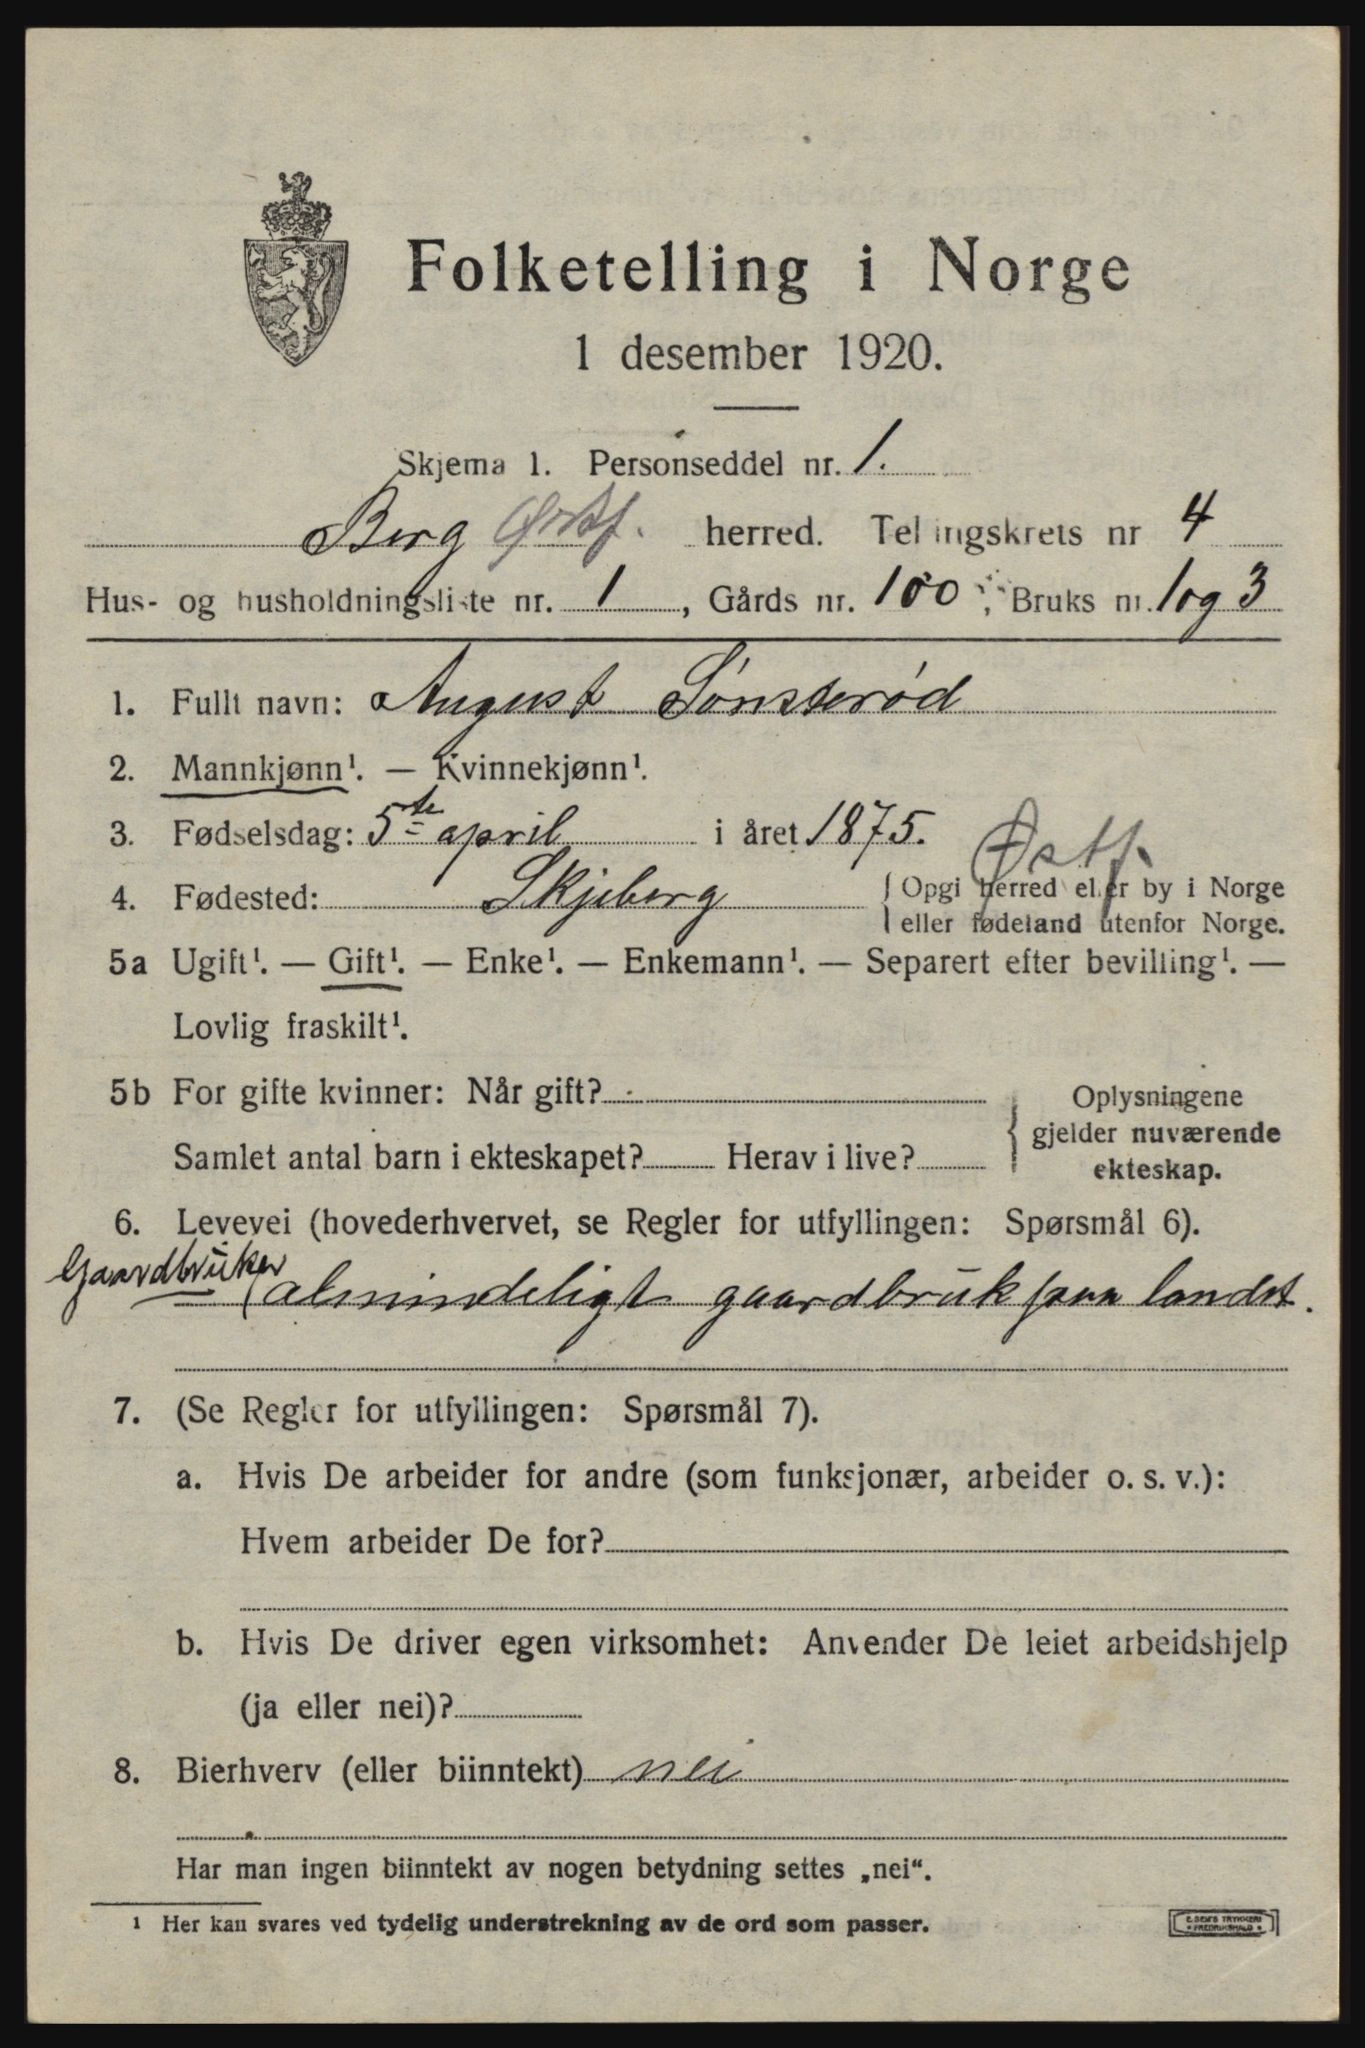 Folketelling i Norge
1 desember 1920.
Skjema 1. Personseddel nr. 1.
Berg Østf. herred. Tellingskrets nr 4
Hus- og husholdningsliste nr. 1, Gårds nr. 100, Bruks nr. 1 og 3
1. Fullt navn: August Sønsterød
2. Mannkjønn¹. — Kvinnekjønn¹.
3. Fødselsdag: 5te april i året 1875.
Østf.
4. Fødested: Skjeberg { Opgi herred eller by i Norge
eller fødeland utenfor Norge.
5a Ugift¹. — Gift¹. — Enke¹. — Enkemann¹. — Separert efter bevilling¹. —
Lovlig fraskilt¹.
5b For gifte kvinner: Når gift?
Samlet antal barn i ekteskapet? Herav i live?
{ Oplysningene
gjelder nuværende
ekteskap.
6. Levevei (hovederhvervet, se Regler for utfyllingen: Spørsmål 6).
Gaardbruker
(almindeligt gaardbruk paa landet.
7. (Se Regler for utfyllingen: Spørsmål 7).
a. Hvis De arbeider for andre (som funksjonær, arbeider o. s. v.):
Hvem arbeider De for?
b. Hvis De driver egen virksomhet: Anvender De leiet arbeidshjelp
(ja eller nei)?
8. Bierhverv (eller biinntekt) nei
Har man ingen biinntekt av nogen betydning settes „nei“.
¹ Her kan svares ved tydelig understrekning av de ord som passer.